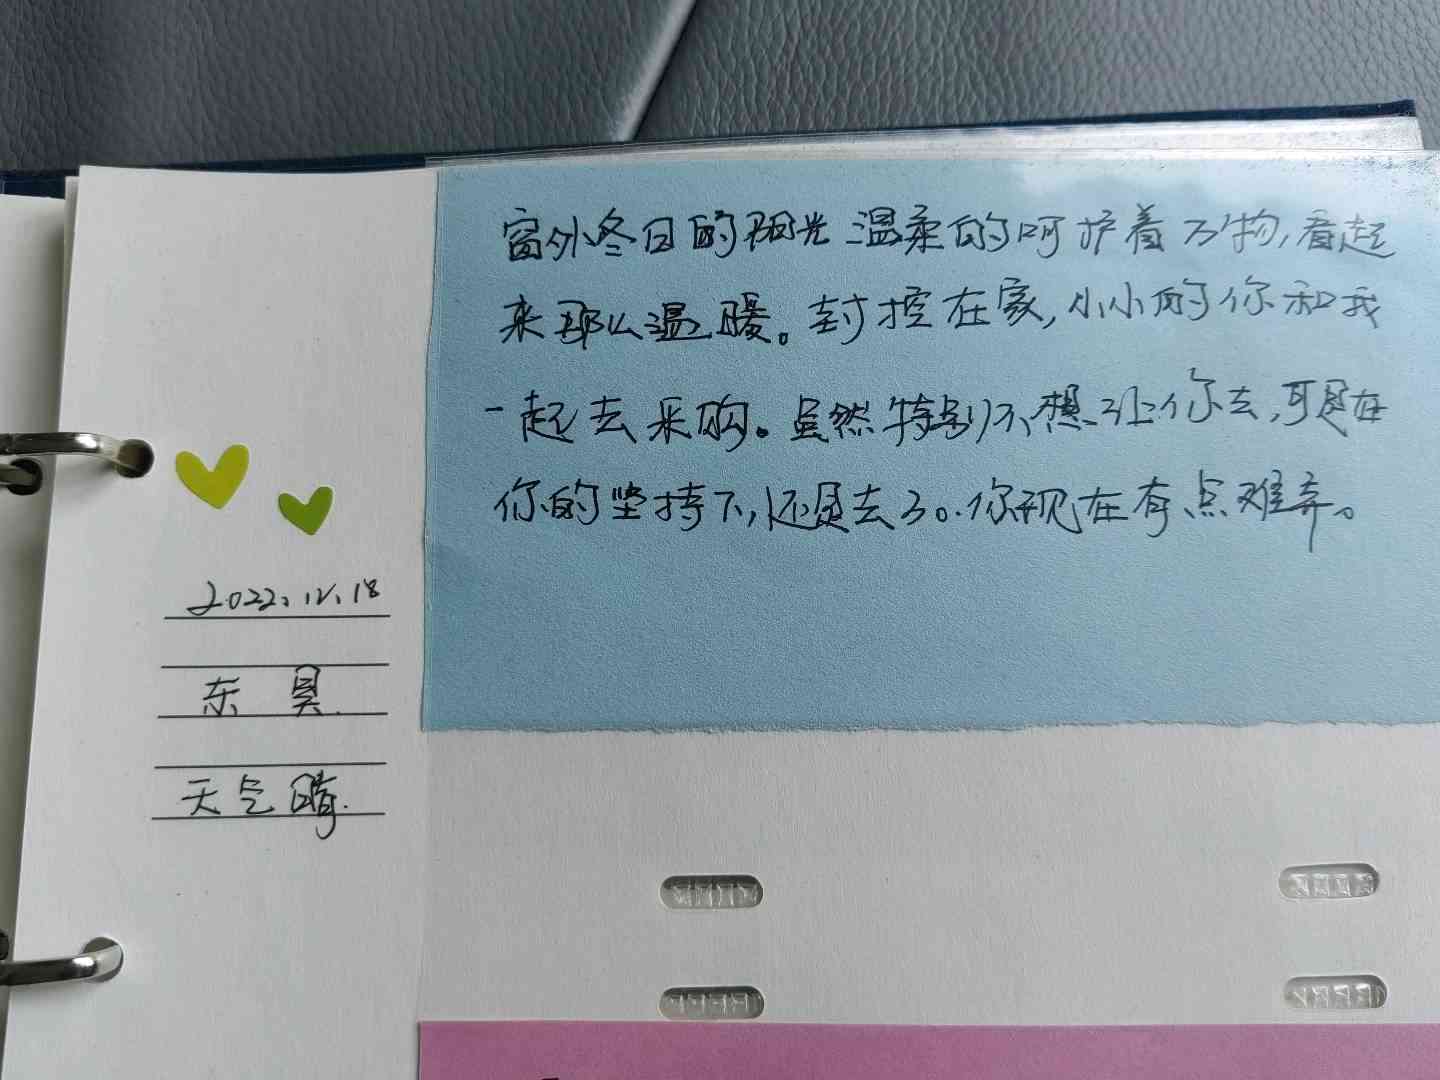 窗外冬日的阳光温柔的呵护着万物,看起
来那么温暖。封控在家,小小的你和我
一起去采购。虽然特别不想让你去,可是在
你的坚持下,还是去了。你现在有点难弄。
2022.12.18
东昊
天气晴.